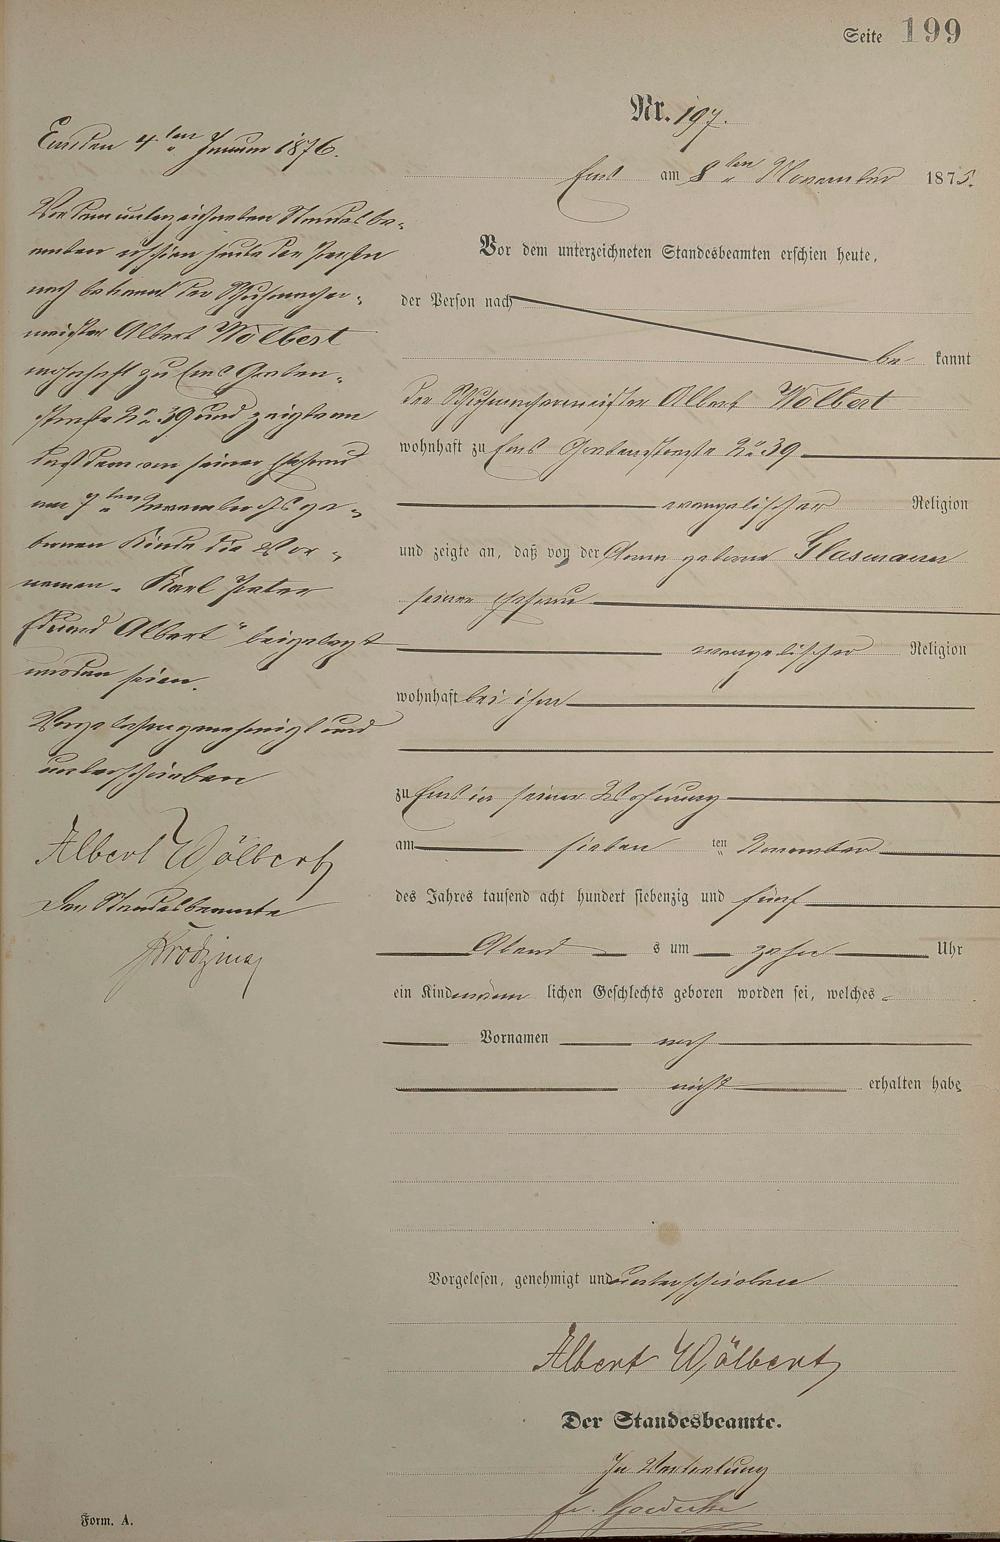 Seite 199
Nr. 197.
Ems am 8ten November 1875.
Vor dem unterzeichneten Standesbeamten erschien heute,
der Person nach
be kannt
der Schuhmachermeister Albert Wölbert
wohnhaft zu Ems Grabenstraße No 39
evangelischer Religion
und zeigte an, daß von der Anna geborene Glasmann
seiner Ehefrau
evangelischer Religion
wohnhaft bei ihm
zu Ems in seiner Wohnung
am sieben ten November
des Jahres tausend acht hundert siebenzig und fünf
Abend s um zehn Uhr
ein Kind männ lichen Geschlechts geboren worden sei, welches
Vornamen noch
nicht erhalten habe
Vorgelesen, genehmigt und unterschrieben
Albert Wölbert
Der Standesbeamte.
In Vertretung
Form. A.
4ten Januar 1876.
Vor dem unterzeichneten Standesbe-
amten erschien heute der Person
nach bekannt der Schuhmacher-
meister Albert Wölbert
wohnhaft zu Ems Graben-
straße No 39 und zeigte an
daß dem von seiner Ehefrau
am 7ten November ge-
borenen Kinde die Vor-
namen "Karl Peter
Eduard Albert" beigelegt
worden seien.
Vorgelesen genehmigt und
unterschrieben
Albert Wölbert
Der Standesbeamte